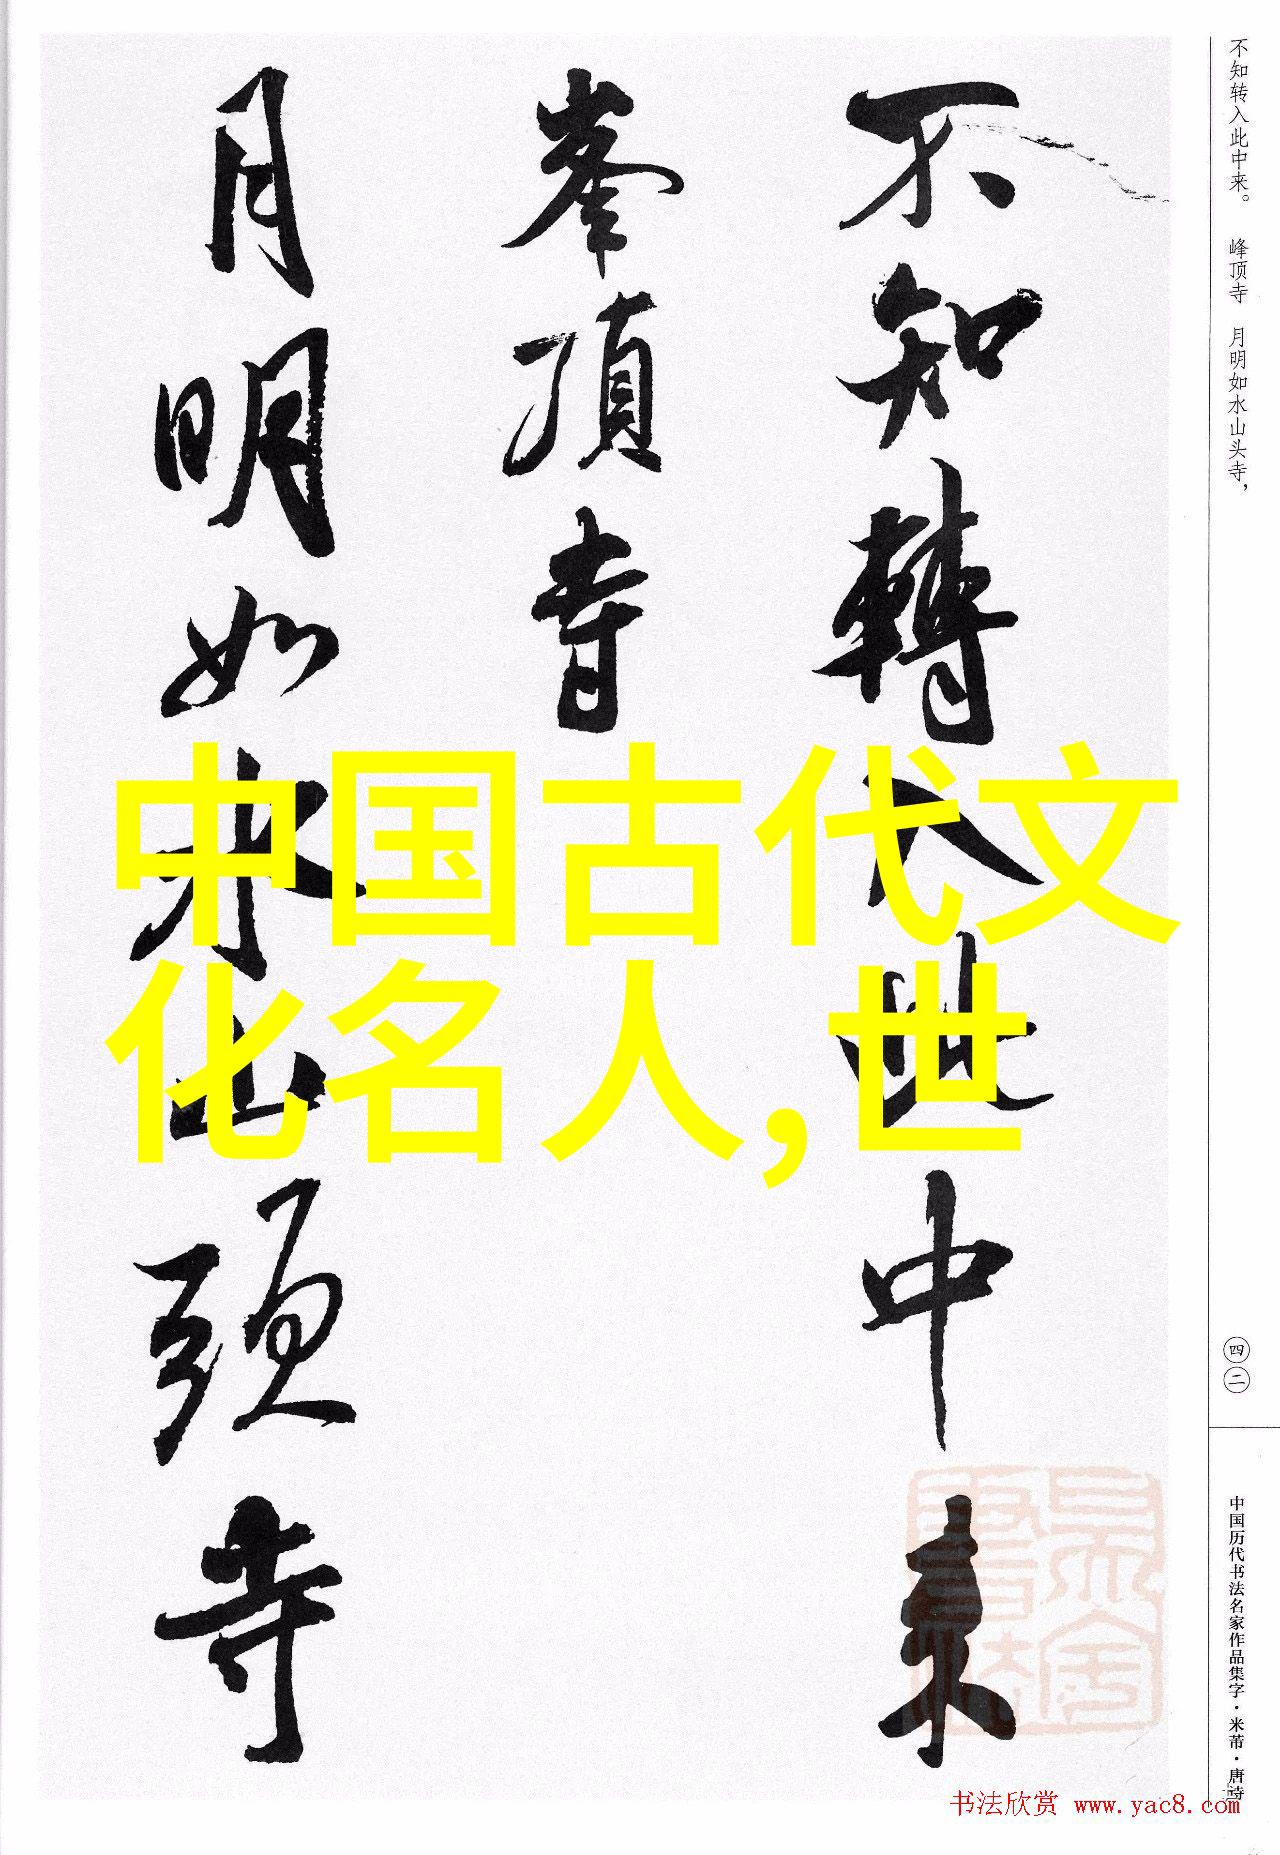 不知转入此中来。 峰顶寺 月明如水山头寺，
不知轉入此中来
峯頂寺
月明如水山頭寺
中国古代文
化名人,世
四二
中国历代书法名家作品集字·米芾·唐诗
书法欣赏 www.yac8.com